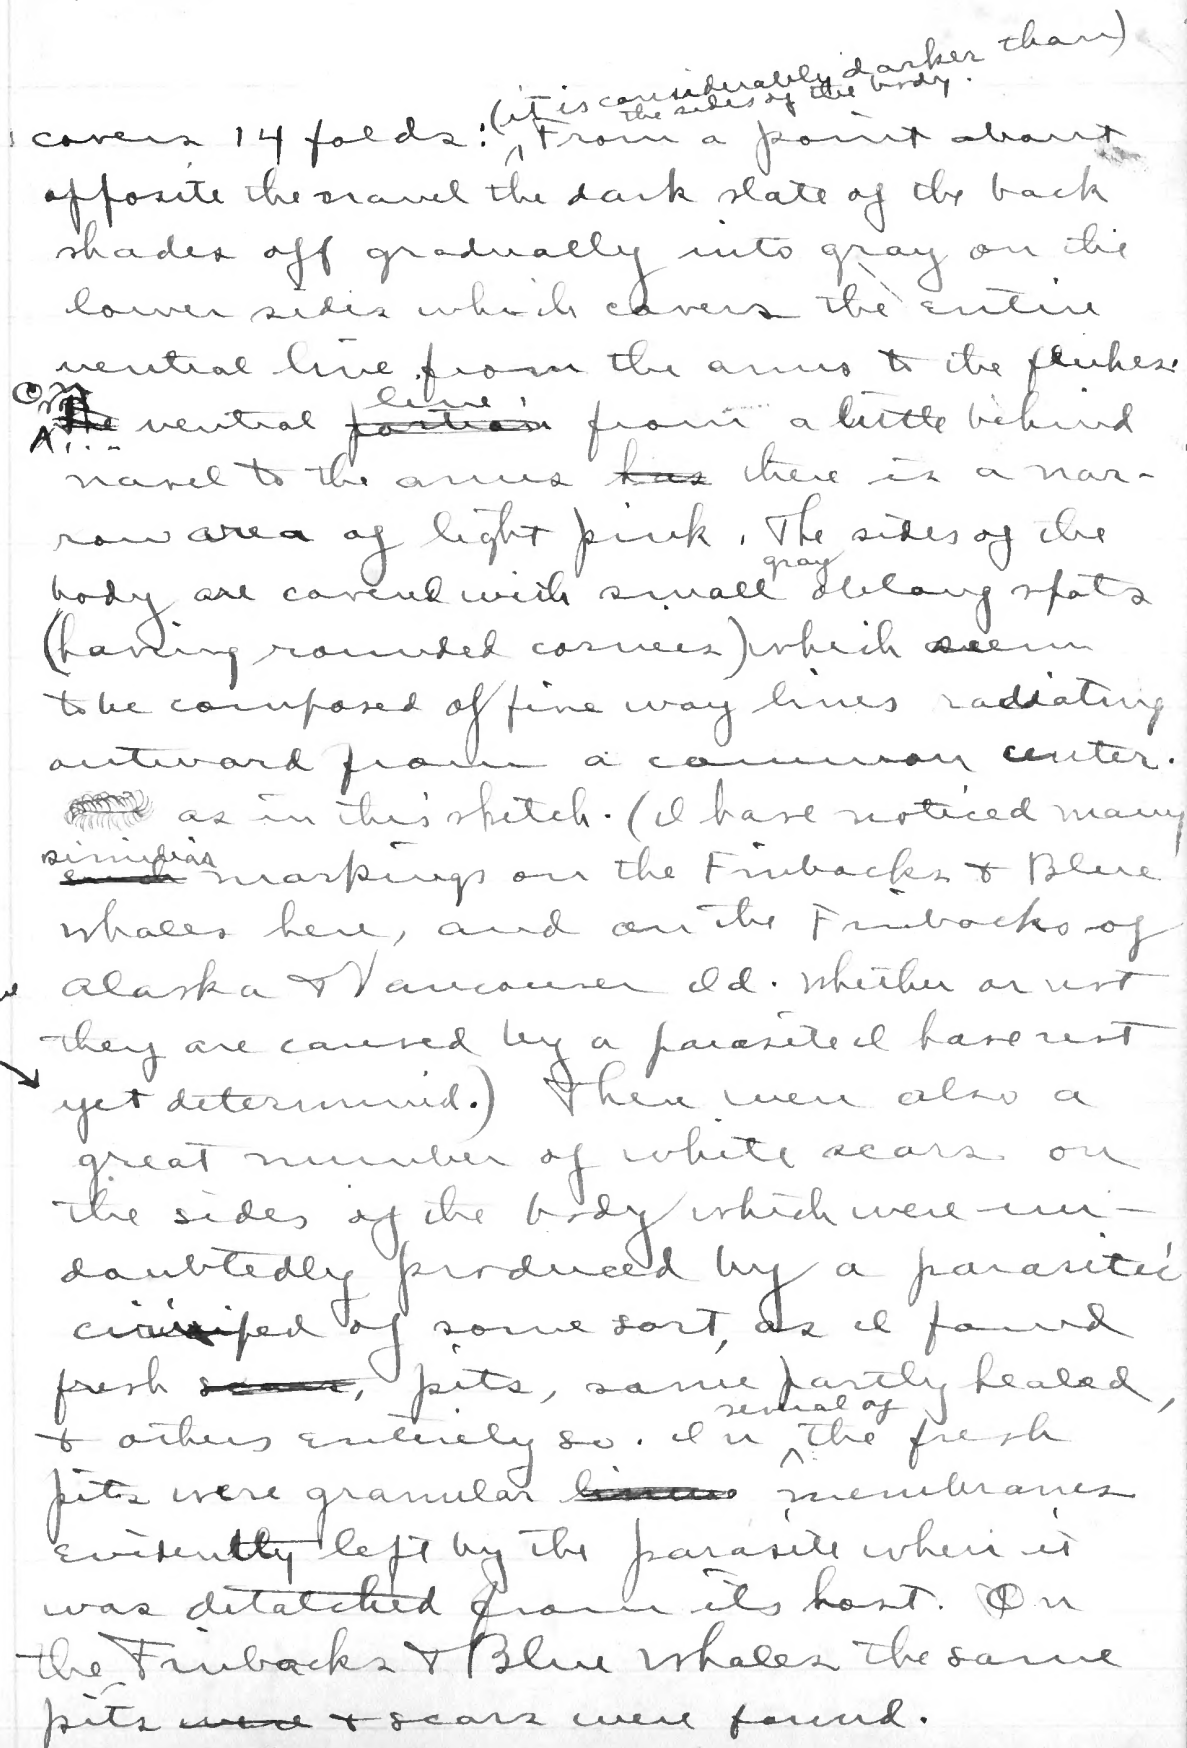 (it is considerably darker than)
the sides of the body.
covers 14 folds: From a point about
opposite the navel the dark slate of the back
shades off gradually into gray on the
lower sides which covers the entire
ventral line from the anus to the flukes.
On
The ventral portion line from a little behind
navel to the anus has there is a nar-
row area of light pink. The sides of the
gray
body are covered with small oblong spots
(having rounded corners) which seem
to be composed of fine wavy lines radiating
outward from a common center.
as in this sketch. (I have noticed many
similar
such markings on the Finbacks & Blue
whales here, and on the Finbacks of
Alaska & Vancouver Id. Whether or not
they are caused by a parasite I have not
yet determind.) There were also a
great number of white scars on
the sides of the body which were un-
doubtedly produced by a parasitic
cirriped of some sort, as I found
fresh scars, pits, some partly healed,
several of
& others entirely so. In the fresh
pits were granular membranes
evidently left by the parasite when it
was detatched from its host. On
the Finbacks & Blue Whales the same
pits were & scars were found.